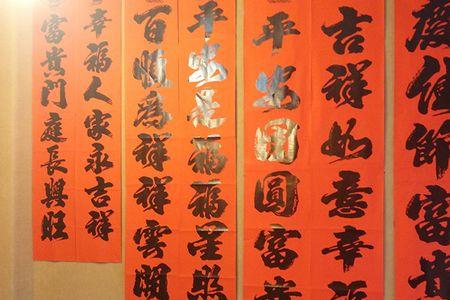 慶佳節富
吉祥如意幸福
平安團圓富貴
平安是福福星照
百順為祥祥雲開
幸福人家永吉祥
富貴門庭長興旺